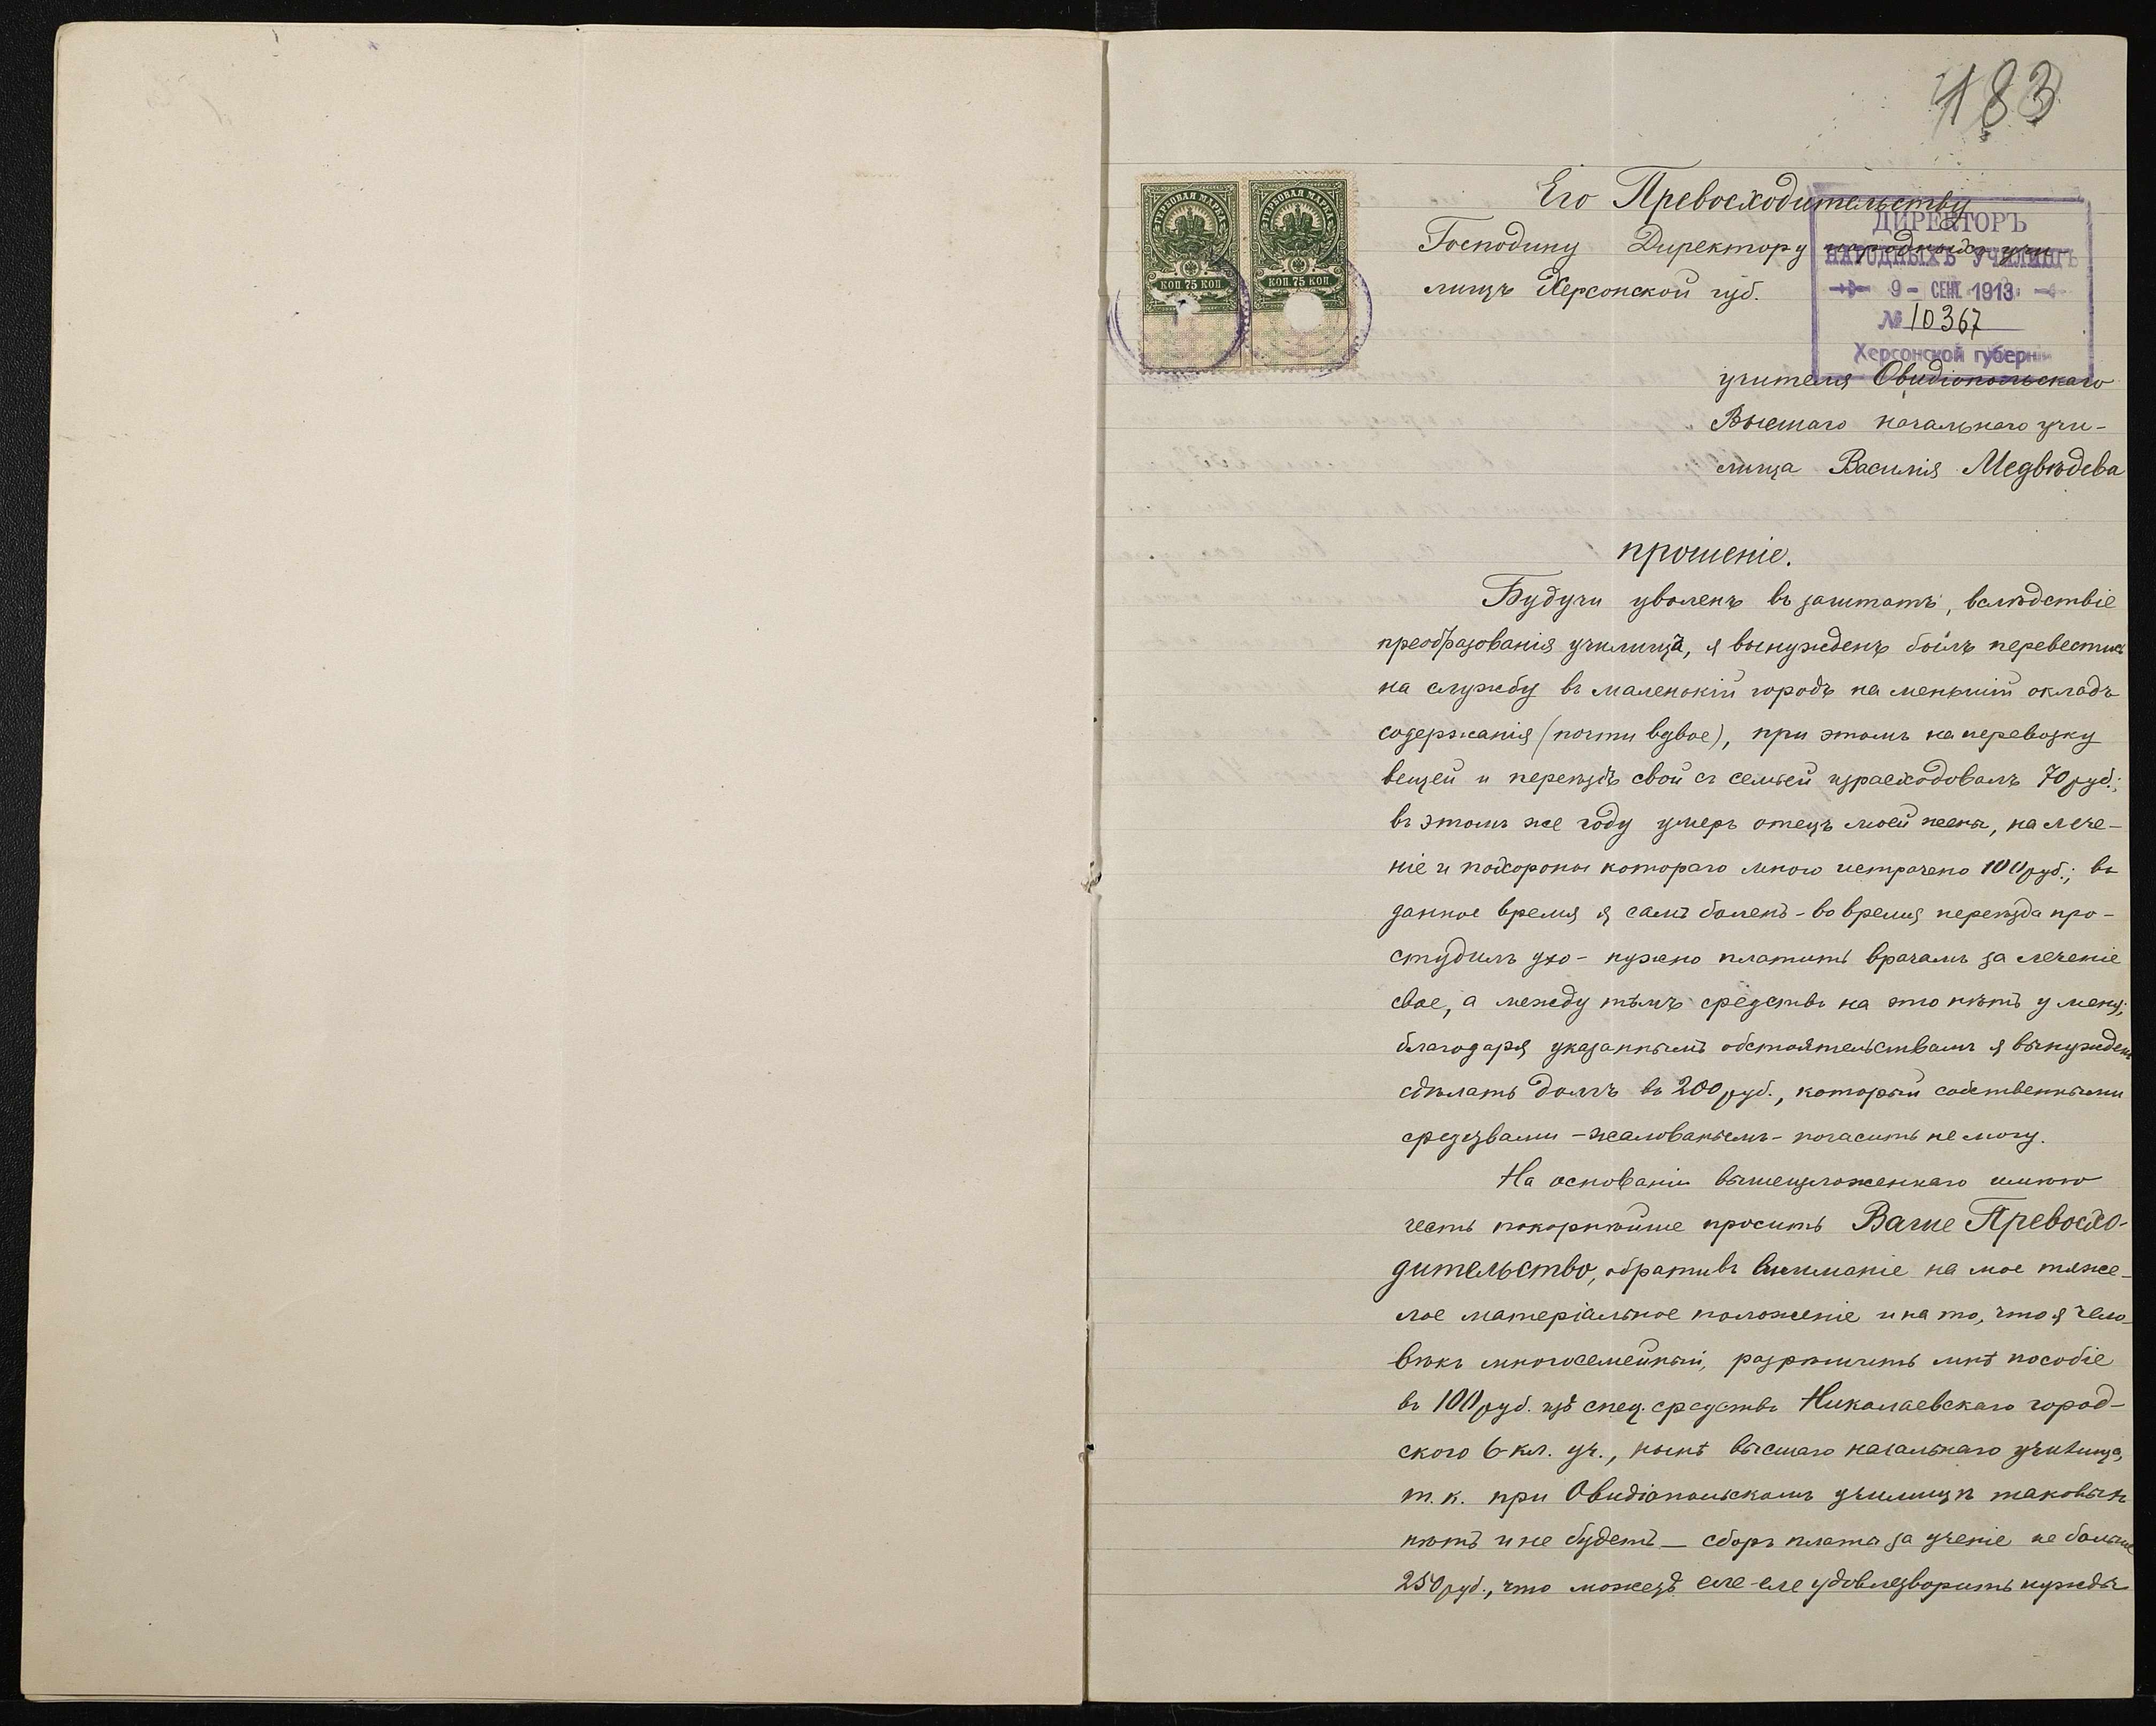 183
ГЕРБОВАЯ МАРКА
КОП 75 КОП
ГЕРБОВАЯ МАРКА
КОП 75 КОП
Его Превосходительству
Господину Директору народныхъ учи-
лищъ Херсонской губ.
ДИРЕКТОРЪ
НАРОДНЫХЪ УЧИЛИЩЪ
9 - СЕН. 1913
№ 10367
Херсонской губерніи
учителя Овидіопольскаго
Высшаго начальнаго учи-
лища Василія Медвѣдева
прошеніе.
Будучи уволенъ въ заштатъ, вслѣдствіе
преобразованія училища, я вынужденъ былъ перевестись
на службу въ маленькій городъ на меньшій окладъ
содержанія (почти вдвое), при этомъ на перевозку
вещей и переѣздъ свой съ семьей израсходовалъ 70 руб.;
въ этомъ же году умеръ отецъ моей жены, на лече-
ніе и похороны котораго мною истрачено 100 руб.; въ
данное время я самъ боленъ - во время переѣзда про-
студилъ ухо - нужно платить врачамъ за леченіе
свое, а между тѣмъ средствъ на это нѣтъ у меня;
благодаря указаннымъ обстоятельствамъ я вынужденъ
сдѣлать долгъ въ 200 руб., который собственными
средствами - жалованьемъ - погасить не могу.
На основаніи вышеизложеннаго имѣю
честь покорнѣйше просить Ваше Превосхо-
дительство, обративъ вниманіе на мое тяже-
лое матеріальное положеніе и на то, что я чело-
вѣкъ многосемейный, разрѣшить мнѣ пособіе
въ 100 руб. изъ спец. средствъ Николаевскаго город-
ского 6-кл. уч., нынѣ высшаго начальнаго училища,
т. к. при Овидіопольскомъ училищѣ таковыхъ
нѣтъ и не будетъ — сборъ платы за ученіе не больше
250 руб., что можетъ еле-еле удовлетворить нужды